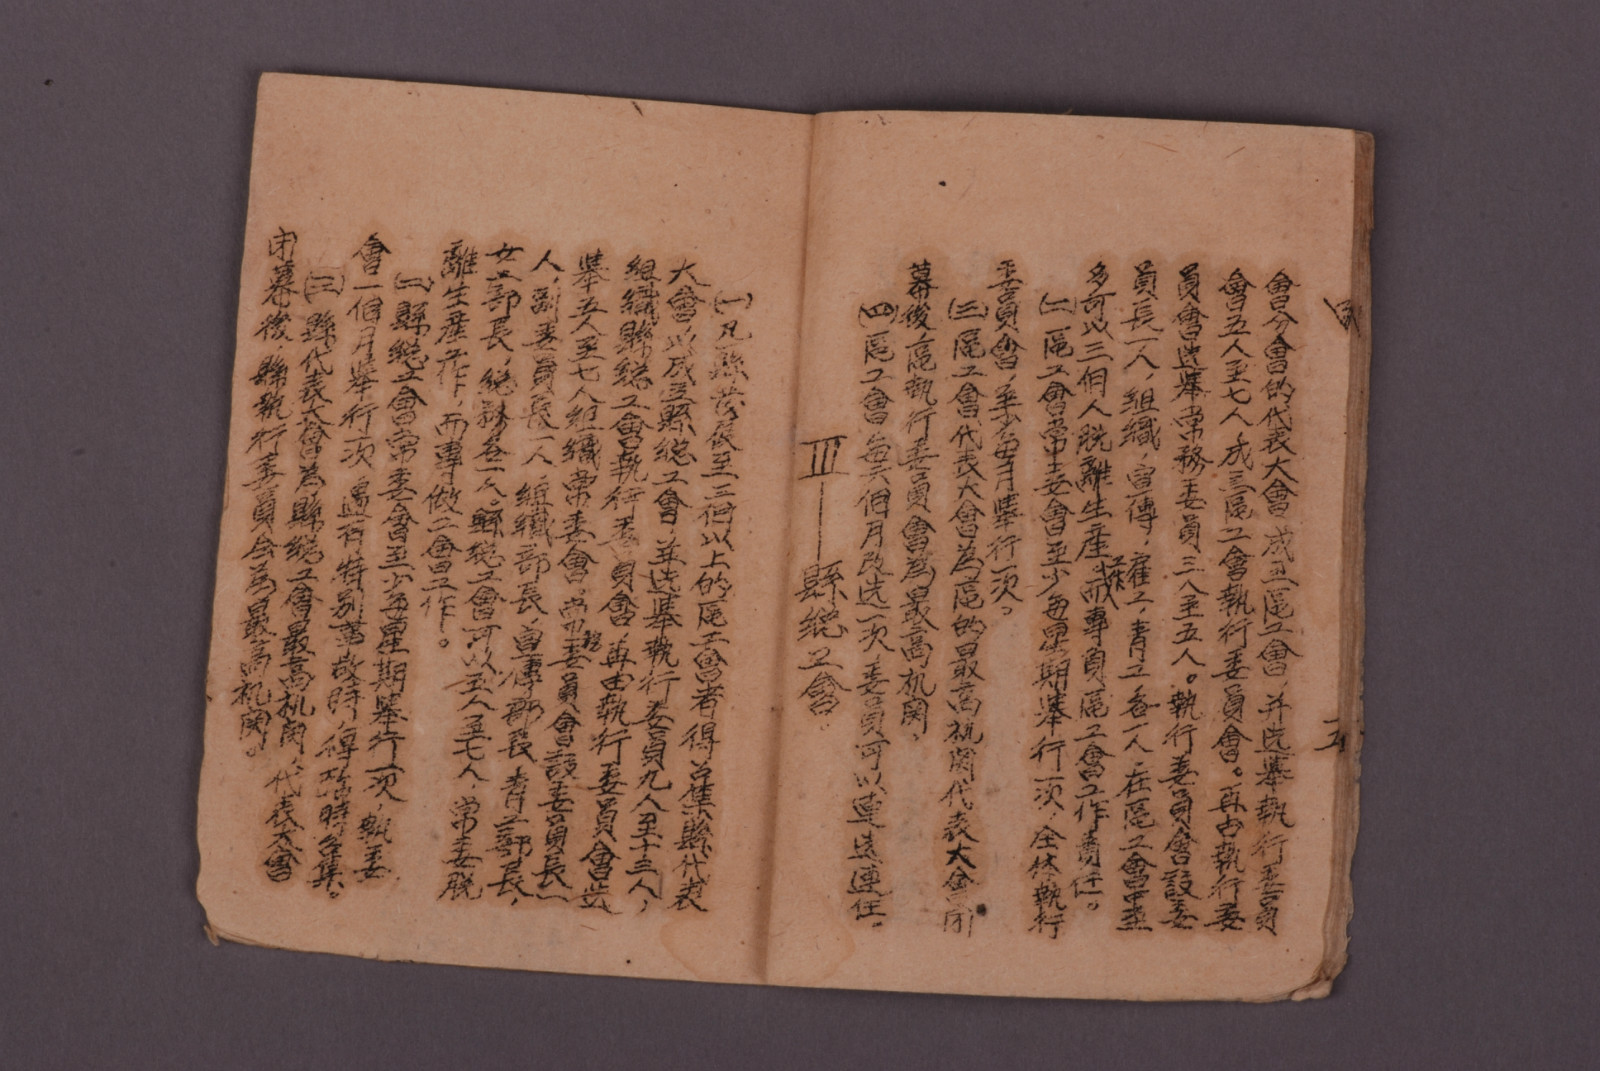 五
會分會的代表大會成立區工會并选舉執行委員
會五人至七人成立區工會執行委員會。再由執行委
員會选舉常務委員三人至五人。執行委員會設委
員長一人，組織，宣傳，雇工，青工各一人，在區工會中至
多可以三個人脫離生產工作而專負區工會工作責任。
(二)區工會常委會至少每星期舉行一次，全体執行
委員會，至少每月舉行一次。
(三)區工會代表大會為區的最高机関代表大會閉
幕後區執行委員會為最高机関，
(四)區工會每六個月改选一次，委員可以連选連任。
III——縣總工會．
(一)凡縣發展至三個以上的區工會者得召集縣代表
大會以成立縣總工會，并选舉執行委員九人至十三人，
組織縣總工會執行委員會，再由執行委員會选
舉五人至七人組織常委會。常委員會設委員長一
人副委員長一人，組織部長，宣傳部長，青工部長，
女工部長，總務各一人。縣總工會可以五人至七人，常委脫
離生產工作，而專做工會工作。
(二)縣總工會常委會至少每星期舉行一次，執委
會一個月舉行一次，遇有特別事故時得臨時召集。
(三)縣代表大會為縣總工會最高机関，代表大會
閉幕後縣執行委員会為最高机関。